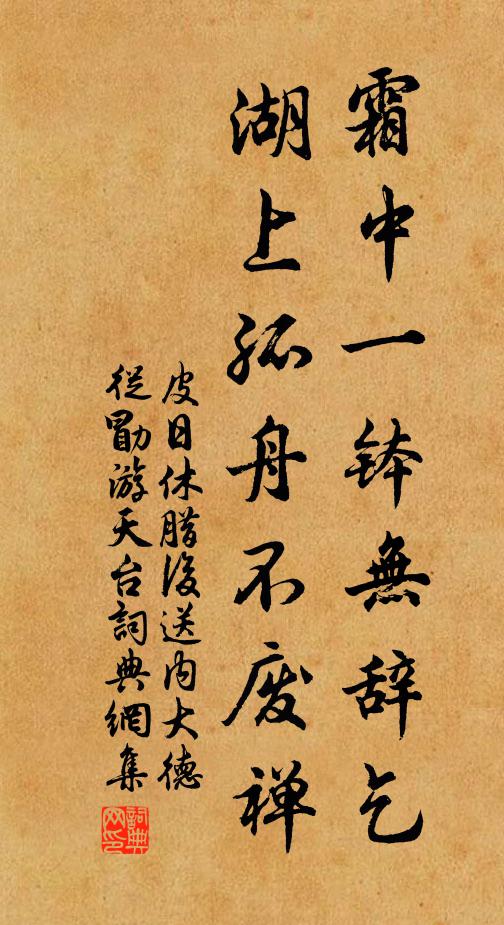 霜中一钵無辞乞
湖上孤舟不废禅
皮日休腊後送内大德
從勖游天台詞典網集
詞典网印